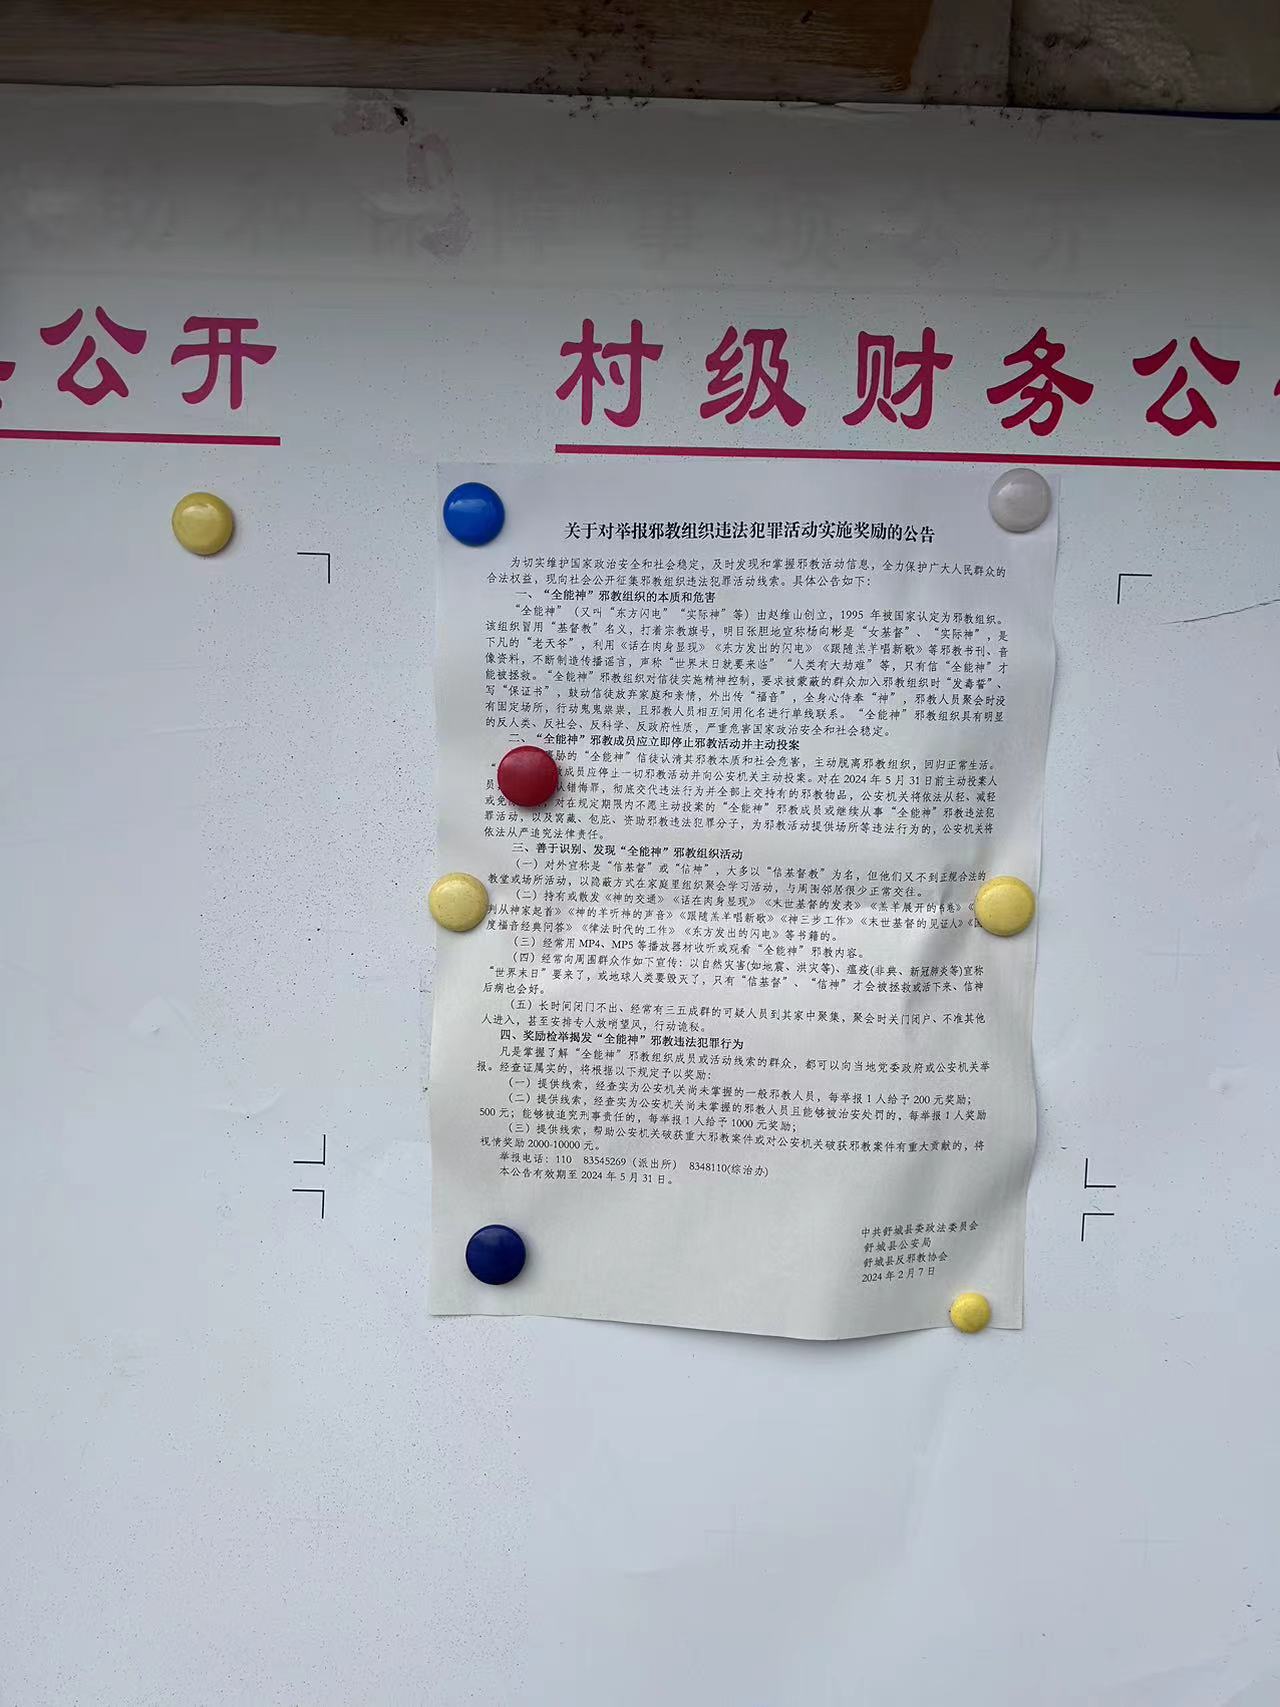 公开
村级财务公
关于对举报邪教组织违法犯罪活动实施奖励的公告
为切实维护国家政治安全和社会稳定，及时发现和掌握邪教活动信息，全力保护广大人民群众的
合法权益，现向社会公开征集邪教组织违法犯罪活动线索。具体公告如下：
一、“全能神”邪教组织的本质和危害
“全能神”（又叫“东方闪电”“实际神”等）由赵维山创立，1995 年被国家认定为邪教组织。
该组织冒用“基督教”名义，打着宗教旗号，明目张胆地宣称杨向彬是“女基督”、“实际神”，是
下凡的“老天爷”，利用《话在肉身显现》《东方发出的闪电》《跟随羔羊唱新歌》等邪教书刊、音
像资料，不断制造传播谣言，声称“世界末日就要来临”“人类有大劫难”等，只有信“全能神”才
能被拯救。“全能神”邪教组织对信徒实施精神控制，要求被蒙蔽的群众加入邪教组织时“发毒誓”、
写“保证书”，鼓动信徒放弃家庭和亲情，外出传“福音”，全身心侍奉“神”，邪教人员聚会时没
有固定场所，行动鬼鬼祟祟，且邪教人员相互间用化名进行单线联系。“全能神”邪教组织具有明显
的反人类、反社会、反科学、反政府性质，严重危害国家政治安全和社会稳定。
二、“全能神”邪教成员应立即停止邪教活动并主动投案
胁的“全能神”信徒认清其邪教本质和社会危害，主动脱离邪教组织，回归正常生活。
成员应停止一切邪教活动并向公安机关主动投案。对在 2024 年 5 月 31 日前主动投案人
员 错悔罪，彻底交代违法行为并全部上交持有的邪教物品，公安机关将依法从轻、减轻
或免 对在规定期限内不愿主动投案的“全能神”邪教成员或继续从事“全能神”邪教违法犯
罪活动，以及窝藏、包庇、资助邪教违法犯罪分子，为邪教活动提供场所等违法行为的，公安机关将
依法从严追究法律责任。
三、善于识别、发现“全能神”邪教组织活动
（一）对外宣称是“信基督”或“信神”，大多以“信基督教”为名，但他们又不到正规合法的
教堂或场所活动，以隐蔽方式在家庭里组织聚会学习活动，与周围邻居很少正常交往。
（二）持有或散发《神的交通》《话在肉身显现》《末世基督的发表》《羔羊展开的书卷》《
判从神家起首》《神的羊听神的声音》《跟随羔羊唱新歌》《神三步工作》《末世基督的见证人》《国
度福音经典问答》《律法时代的工作》《东方发出的闪电》等书籍的。
（三）经常用 MP4、MP5 等播放器材收听或观看“全能神”邪教内容。
（四）经常向周围群众作如下宣传：以自然灾害(如地震、洪灾等)、瘟疫(非典、新冠肺炎等)宣称
“世界末日”要来了，或地球人类要毁灭了，只有“信基督”、“信神”才会被拯救或活下来、信神
后病也会好。
（五）长时间闭门不出、经常有三五成群的可疑人员到其家中聚集，聚会时关门闭户、不准其他
人进入，甚至安排专人放哨望风，行动诡秘。
四、奖励检举揭发“全能神”邪教违法犯罪行为
凡是掌握了解“全能神”邪教组织成员或活动线索的群众，都可以向当地党委政府或公安机关举
报。经查证属实的，将根据以下规定予以奖励：
（一）提供线索，经查实为公安机关尚未掌握的一般邪教人员，每举报 1 人给予 200 元奖励；
（二）提供线索，经查实为公安机关尚未掌握的邪教人员且能够被治安处罚的，每举报 1 人奖励
500 元；能够被追究刑事责任的，每举报 1 人给予 1000 元奖励；
（三）提供线索，帮助公安机关破获重大邪教案件或对公安机关破获邪教案件有重大贡献的，将
视情奖励 2000-10000 元。
举报电话：110 83545269（派出所） 8348110(综治办)
本公告有效期至 2024 年 5 月 31 日。
中共舒城县委政法委员会
舒城县公安局
舒城县反邪教协会
2024 年 2 月 7 日